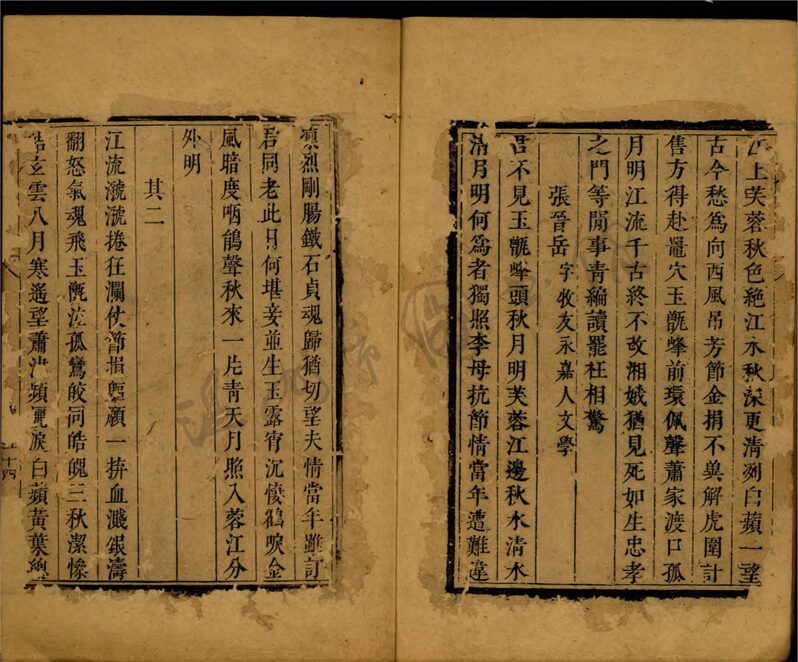 上芙蓉秋色絶江水秋深更清冽白蘋一望
古今愁爲向西風吊芳節金捐不與解虎圍計
售方得赴鼉穴玉甑峰前環佩聲蕭家渡口孤
月明江流千古終不改湘娥猶見死如生忠孝
之門等閒事青編讀罷枉相驚
張晉岳字牧友永嘉人文學
君不見玉甑峰頭秋月明芙蓉江邊秋水清水
清月明何爲者獨照李母抗節情當年遭難違
烈剛腸鐵石貞魂歸猶切望夫情當年雖訂
君同老此日何堪妾並生玉露宵沉悽鶴唳金
風暗度咽鵑聲秋來一片青天月照入蓉江分
外明
其二
江流㶁㶁捲狂瀾仗節捐軀顧一拚血濺銀濤
翻怒氣魂飛玉甑泣孤鸞皎同皓魄三秋潔慘
玄雲八月寒遥望蕭江蘋灑淚白蘋黃葉總
十四